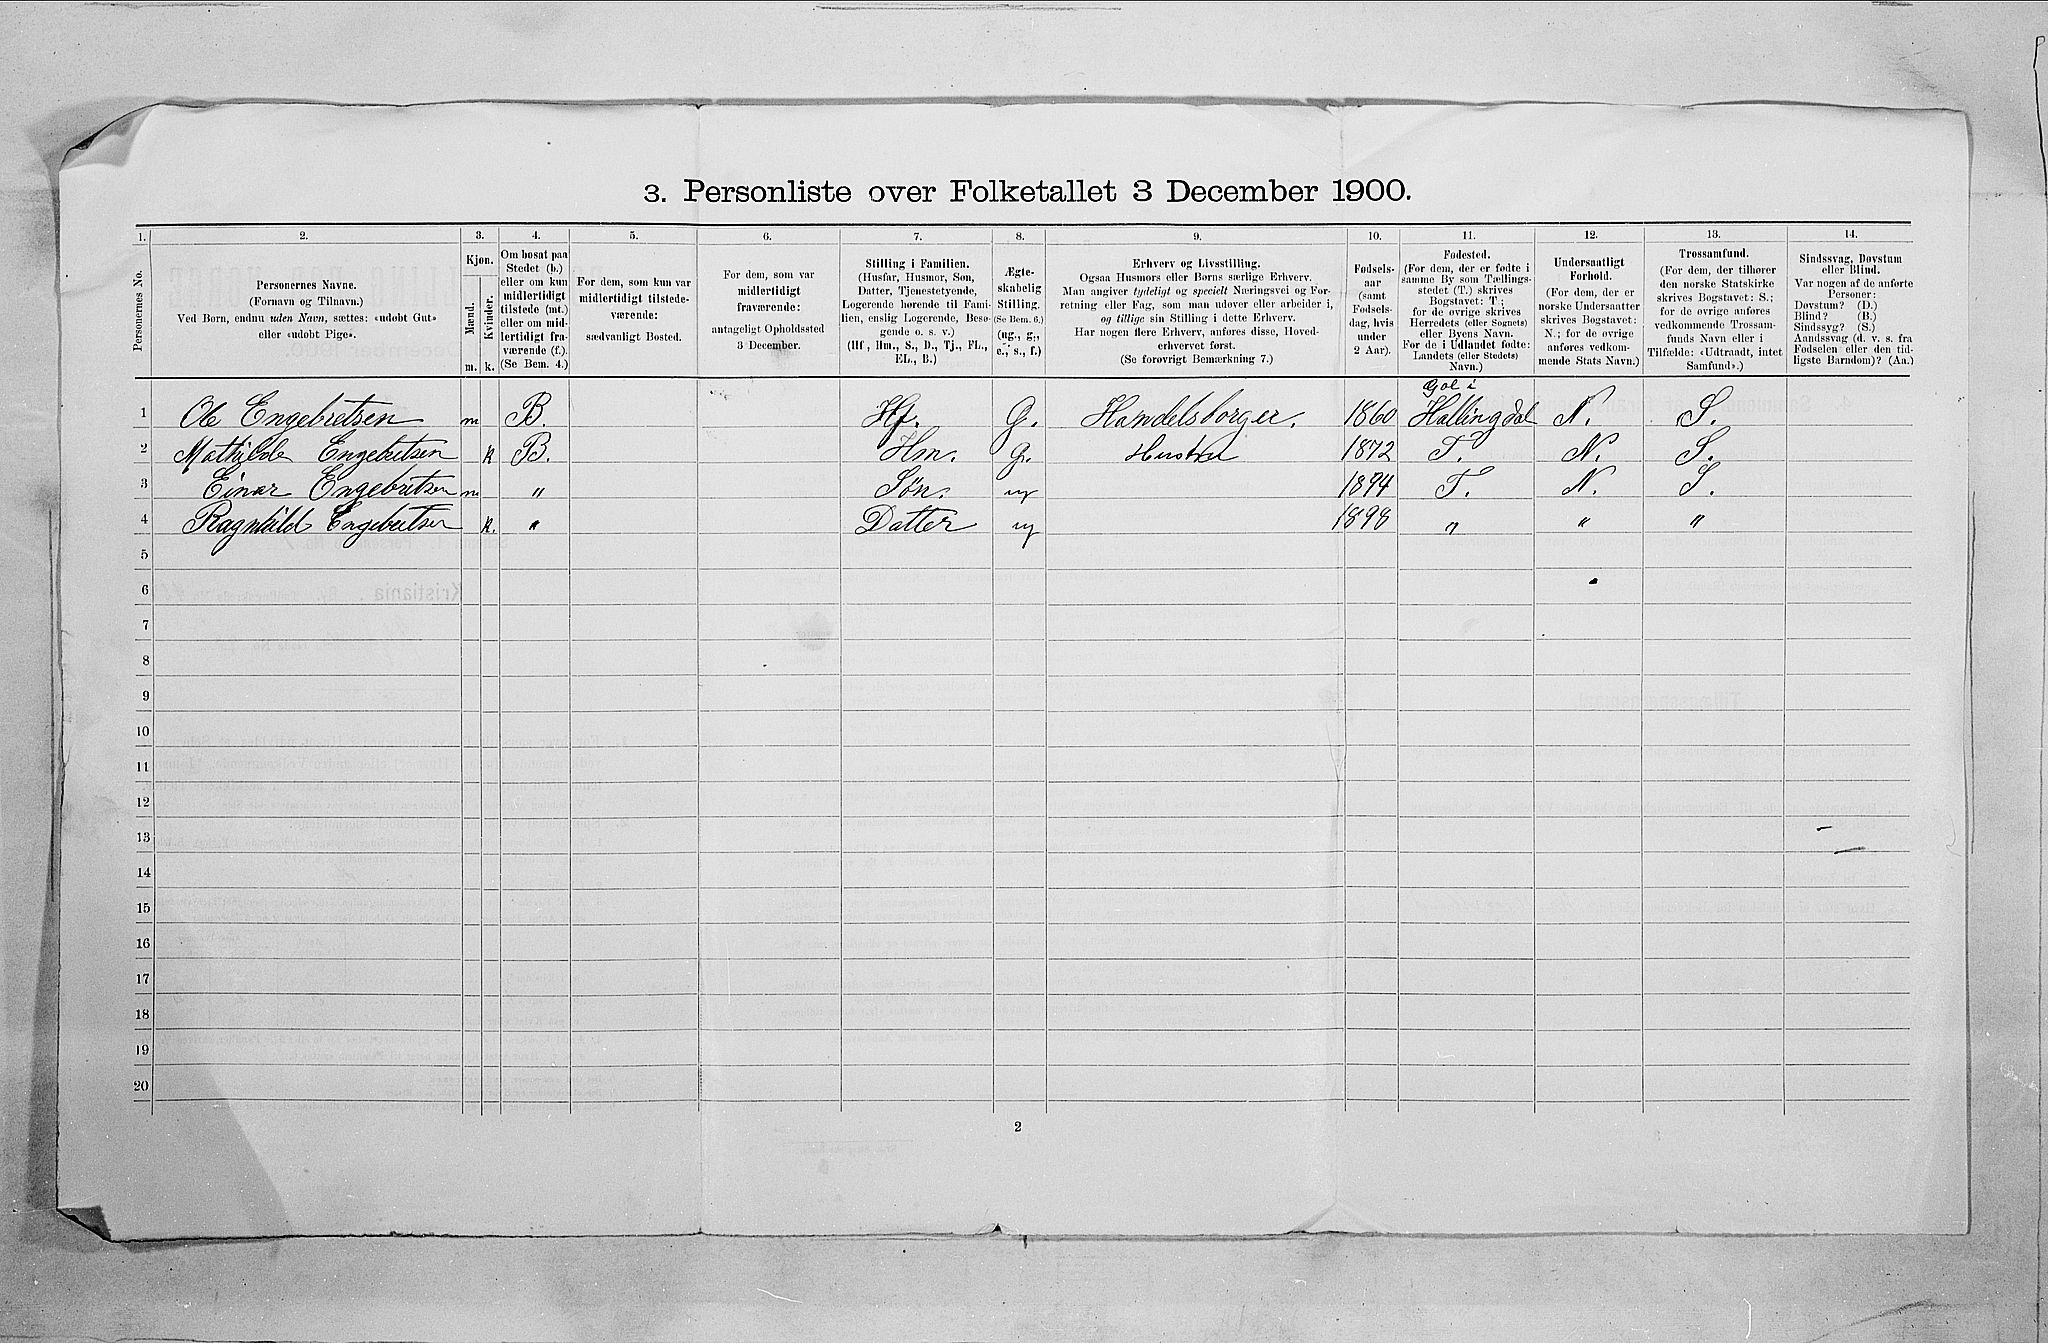 3. Personliste over Folketallet 3 December 1900.
1. 2. 3. 4. 5. 6. 7. 8. 9. 10. 11. 12. 13. 14.
Personernes No.
Personernes Navne.
(Fornavn og Tilnavn.)
Ved Børn, endnu uden Navn, sættes: «udøbt Gut»
eller «udøbt Pige».
Kjøn.
Mænd.
Kvinder.
m. k.
Om bosat paa
Stedet (b.)
eller om kun
midlertidigt
tilstede (mt.)
eller om mid-
lertidigt fra-
værende (f.).
(Se Bem. 4.)
For dem, som kun var
midlertidigt tilstede-
værende:
sædvanligt Bosted.
For dem, som var
midlertidigt
fraværende:
antageligt Opholdssted
3 December.
Stilling i Familien.
(Husfar, Husmor, Søn,
Datter, Tjenestetyende,
Logerende hørende til Fami-
lien, enslig Logerende, Besø-
gende o. s. v.)
(Hf., Hm., S., D., Tj., FL.,
EL., B.)
Ægte-
skabelig
Stilling.
(Se Bem. 6.)
(ug., g.,
e., s., f.)
Erhverv og Livsstilling.
Ogsaa Husmors eller Børns særlige Erhverv.
Man angiver tydeligt og specielt Næringsvei og For-
retning eller Fag, som man udøver eller arbeider i,
og tillige sin Stilling i dette Erhverv.
Har nogen flere Erhverv, anføres disse, Hoved-
erhvervet først.
(Se forøvrigt Bemærkning 7.)
Fødsels-
aar
(samt
Fødsels-
dag, hvis
under
2 Aar).
Fødested.
(For dem, der er fødte i
samme By som Tællings-
stedet (T.) skrives
Bogstavet: T.;
for de øvrige skrives
Herredets (eller Sognets)
eller Byens Navn.
For de i Udlandet fødte:
Landets (eller Stedets)
Navn.)
Undersaatligt
Forhold.
(For dem, der er
norske Undersaatter
skrives Bogstavet:
N.; for de øvrige
anføres vedkom-
mende Stats Navn.)
Trossamfund.
(For dem, der tilhører
den norske Statskirke
skrives Bogstavet: S.;
for de øvrige anføres
vedkommende Trossam-
funds Navn eller i
Tilfælde: «Udtraadt, intet
Samfund».)
Sindssvag, Døvstum
eller Blind.
Var nogen af de anførte
Personer:
Døvstum? (D.)
Blind? (B.)
Sindssyg? (S.)
Aandssvag (d. v. s. fra
Fødselen eller den tid-
ligste Barndom)? (Aa.)
Gol i
1 Ole Engebretsen m B. Hf. G. Handelsborger. 1860 Hallingdal N. S.
2 Mathilde Engebretsen k B. Hm. G. Hustru 1872 T. N. S.
3 Einar Engebretsen m " Søn. ug 1894 T. N. S.
4 Ragnhild Engebretsen k. " Datter ug 1898 " " "
5
6
7
8
9
10
11
12
13
14
15
16
17
18
19
20
2